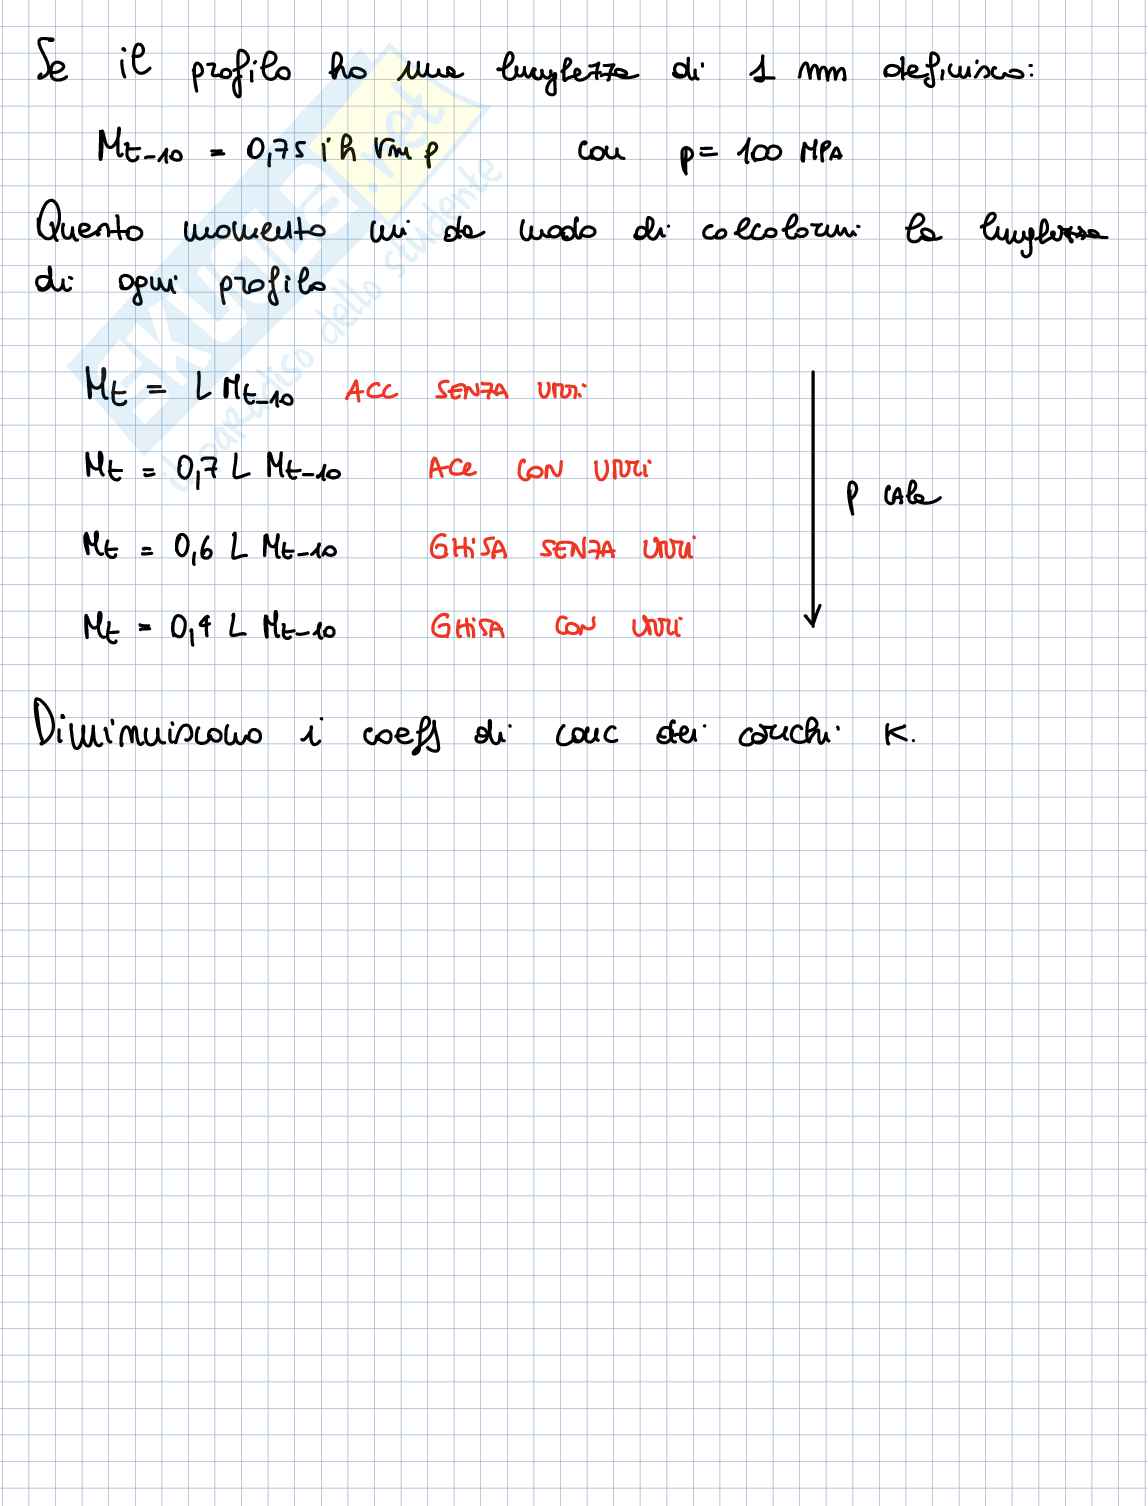 Se il profilo ha una lunghezza di 1 mm definisco:
Mt-10 = 0,75 i h rm p con p = 100 MPA
Questo momento mi da modo di calcolarmi la lunghezza
di ogni profilo
Mt = L Mt-10 ACC SENZA URTI
Mt = 0,7 L Mt-10 ACC CON URTI
p cala
Mt = 0,6 L Mt-10 GHISA SENZA URTI
Mt = 0,4 L Mt-10 GHISA CON URTI
Diminuiscono i coeff di conc dei carichi K.
SKUOLA.net
il paradiso dello studente